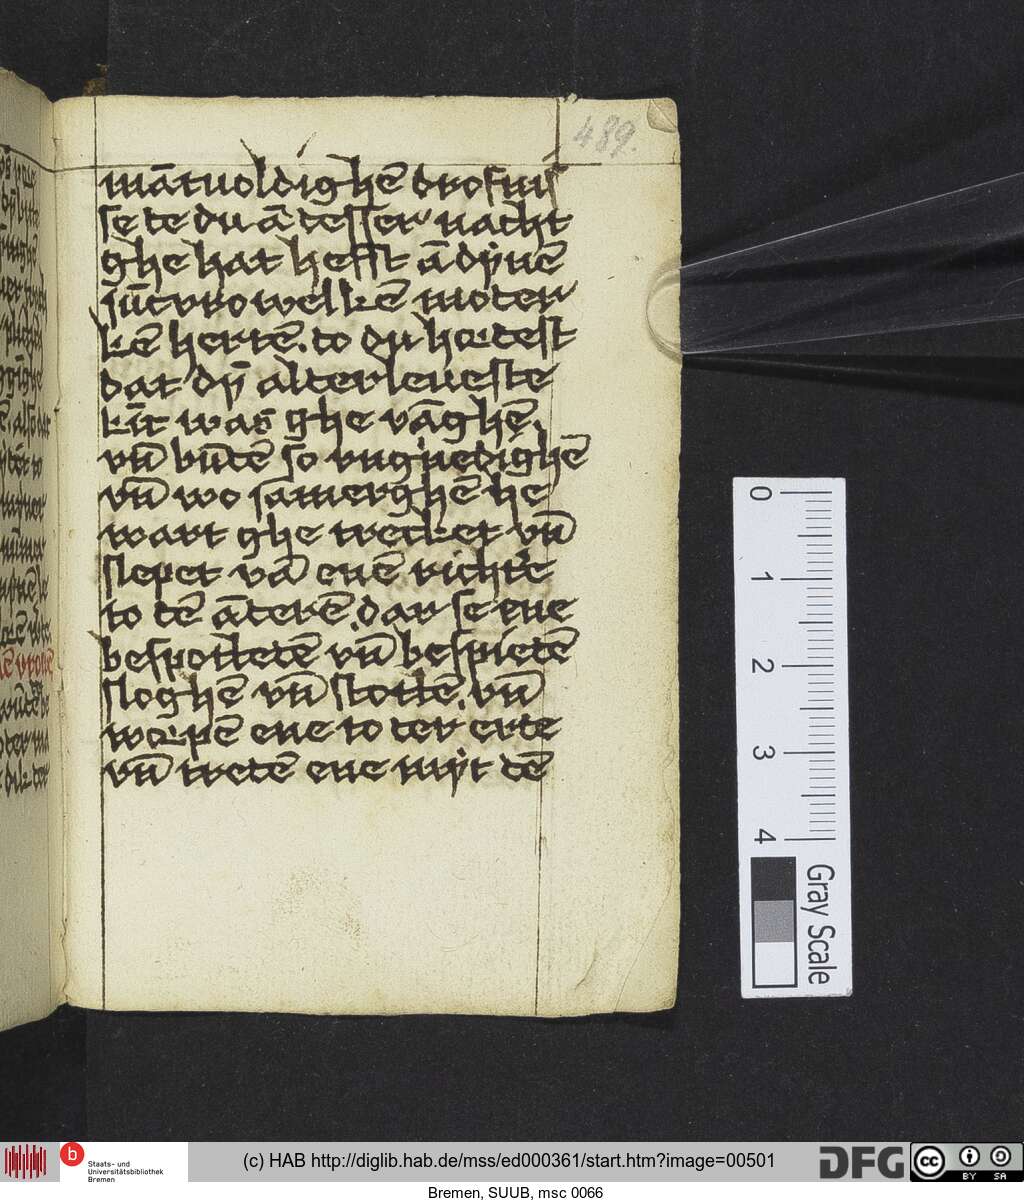 489.
mātuoldighē drofnis
se te du ā tesser nacht
ghe hat hefft ā dỹnē
sūt vrowelkē moter
kē hertē. to du hortest
dat dȳ alterleueste
kīt was ghe vāghē.
vn̄ būtē so vngnedighē
vn̄ wo iamerghē he
wart ghe trecket vn̄
slepet vā enē richte
to tē āterē. dar se ene
bespottetē vn̄ bespietē
sloghē vn̄ stottē. vn̄
worpē ene to ter erte
vn̄ tretē ene mẏt tē
0
1
2
3
4
Gray Scale
b
Staats- und
Universitätsbibliothek
Bremen
(c) HAB http://diglib.hab.de/mss/ed000361/start.htm?image=00501
DFG
cc
BY SA
Bremen, SUUB, msc 0066